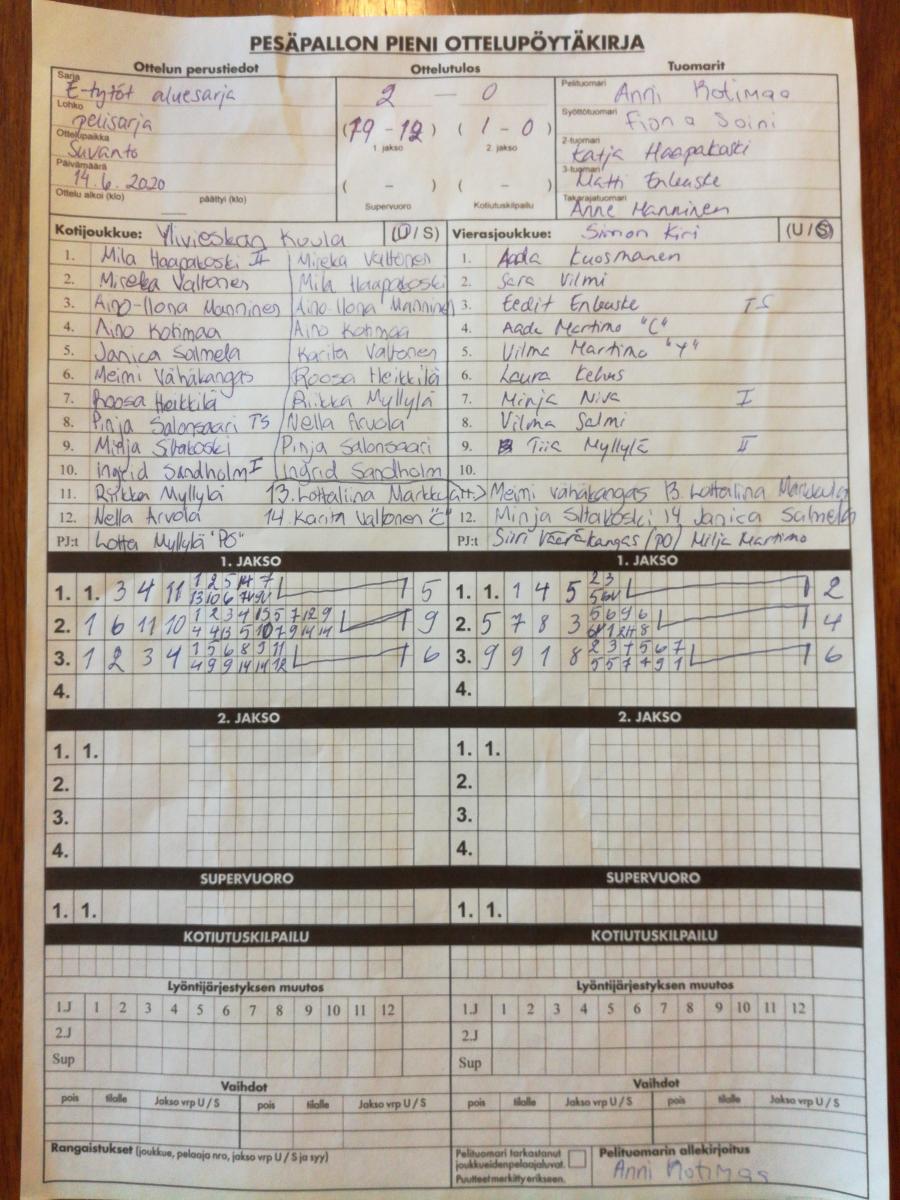 PESÄPALLON PIENI OTTELUPÖYTÄKIRJA
Ottelun perustiedot
Ottelutulos
Tuomarit
Sarja
E-tytöt aluesarja
Lohko
pelisarja
Ottelupaikka
Suvanto
Päivämäärä
14.6.2020
Ottelu alkoi (klo) päättyi (klo)
2 — 0
(19 - 12) (1 - 0)
1. jakso 2. jakso
( - ) ( - )
Supervuoro Kotiutuskilpailu
Pelituomari
Anni Kotimaa
Syöttötuomari
Fiona Soini
2-tuomari
Katja Haapakoski
3-tuomari
Matti Enbuske
Takarajatuomari
Anne Manninen
Kotijoukkue: Ylivieskan Kuula (U / S)
1. Mila Haapakoski II Mireka Valtonen
2. Mireka Valtonen Mila Haapakoski
3. Aino-Ilona Manninen Aino-Ilona Manninen
4. Aino Kotimaa Aino Kotimaa
5. Janica Salmela Karita Valtonen
6. Meimi Vähäkangas Roosa Heikkilä
7. Roosa Heikkilä Riikka Myllylä
8. Pinja Salonsaari TS Nella Arvola
9. Minja Siltakoski Pinja Salonsaari
10. Ingrid Sandholm I Ingrid Sandholm
11. Riikka Myllylä 13. Lottaliina Markkula
12. Nella Arvola 14. Karita Valtonen "C"
PJ:t Lotta Myllylä "PO"
Vierasjoukkue: Simon Kiri (U / S)
1. Aada Kuosmanen
2. Sara Vilmi
3. Eedit Enbuske TS
4. Aada Martimo "C"
5. Vilma Martimo "Y"
6. Laura Kehus
7. Minja Niva I
8. Vilma Salmi
9. Tiia Myllylä II
10.
Meimi Vähäkangas 13. Lottaliina Markkula
12. Minja Siltakoski 14 Janica Salmela
PJ:t Siiri Vääräkangas (PO) Milja Martimo
1. JAKSO
1. 1. 3 4 11
5
2. 1 6 11 10
9
3. 1 2 3 4
6
4.
1. JAKSO
1. 1. 1 4 5
2
2. 5 7 8 3
4
3. 9 9 1 8
6
4.
2. JAKSO
1. 1.
2.
3.
4.
2. JAKSO
1. 1.
2.
3.
4.
SUPERVUORO
1. 1.
SUPERVUORO
1. 1.
KOTIUTUSKILPAILU
KOTIUTUSKILPAILU
Lyöntijärjestyksen muutos
1.J 1 2 3 4 5 6 7 8 9 10 11 12
2.J
Sup
Lyöntijärjestyksen muutos
1.J 1 2 3 4 5 6 7 8 9 10 11 12
2.J
Sup
Vaihdot
pois tilalle Jakso vrp U / S pois tilalle Jakso vrp U / S
Vaihdot
pois tilalle Jakso vrp U / S pois tilalle Jakso vrp U / S
Rangaistukset (joukkue, pelaaja nro, jakso vrp U / S ja syy)
Pelituomari tarkastanut
joukkueidenpelaajaluvat.
Puutteet merkitty erikseen.
Pelituomarin allekirjoitus
Anni Kotimaa